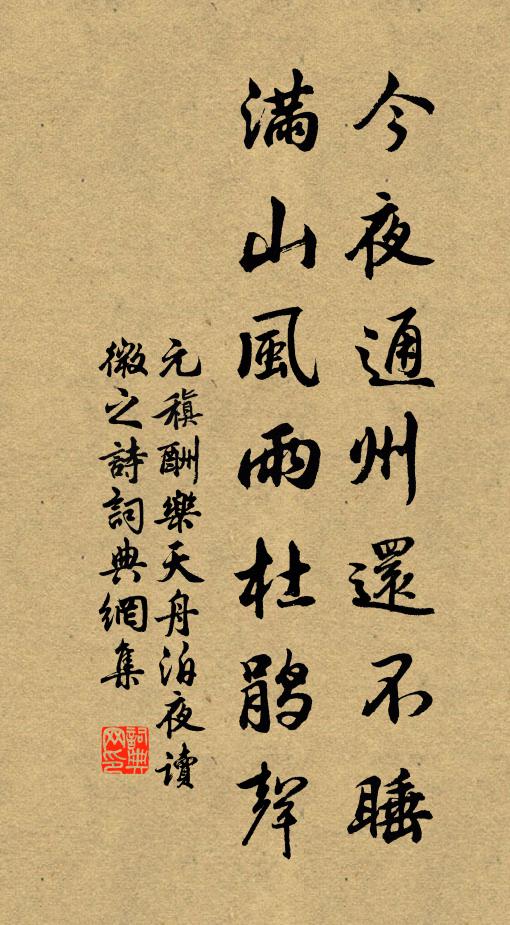 今夜通州還不睡
滿山風雨杜鵑聲
元稹酬樂天舟泊夜讀
微之詩詞典網集
詞典網印